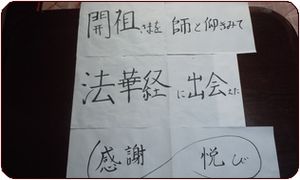 開祖さまを師と仰ぎみて
法華経に出会えた
感謝 悦び